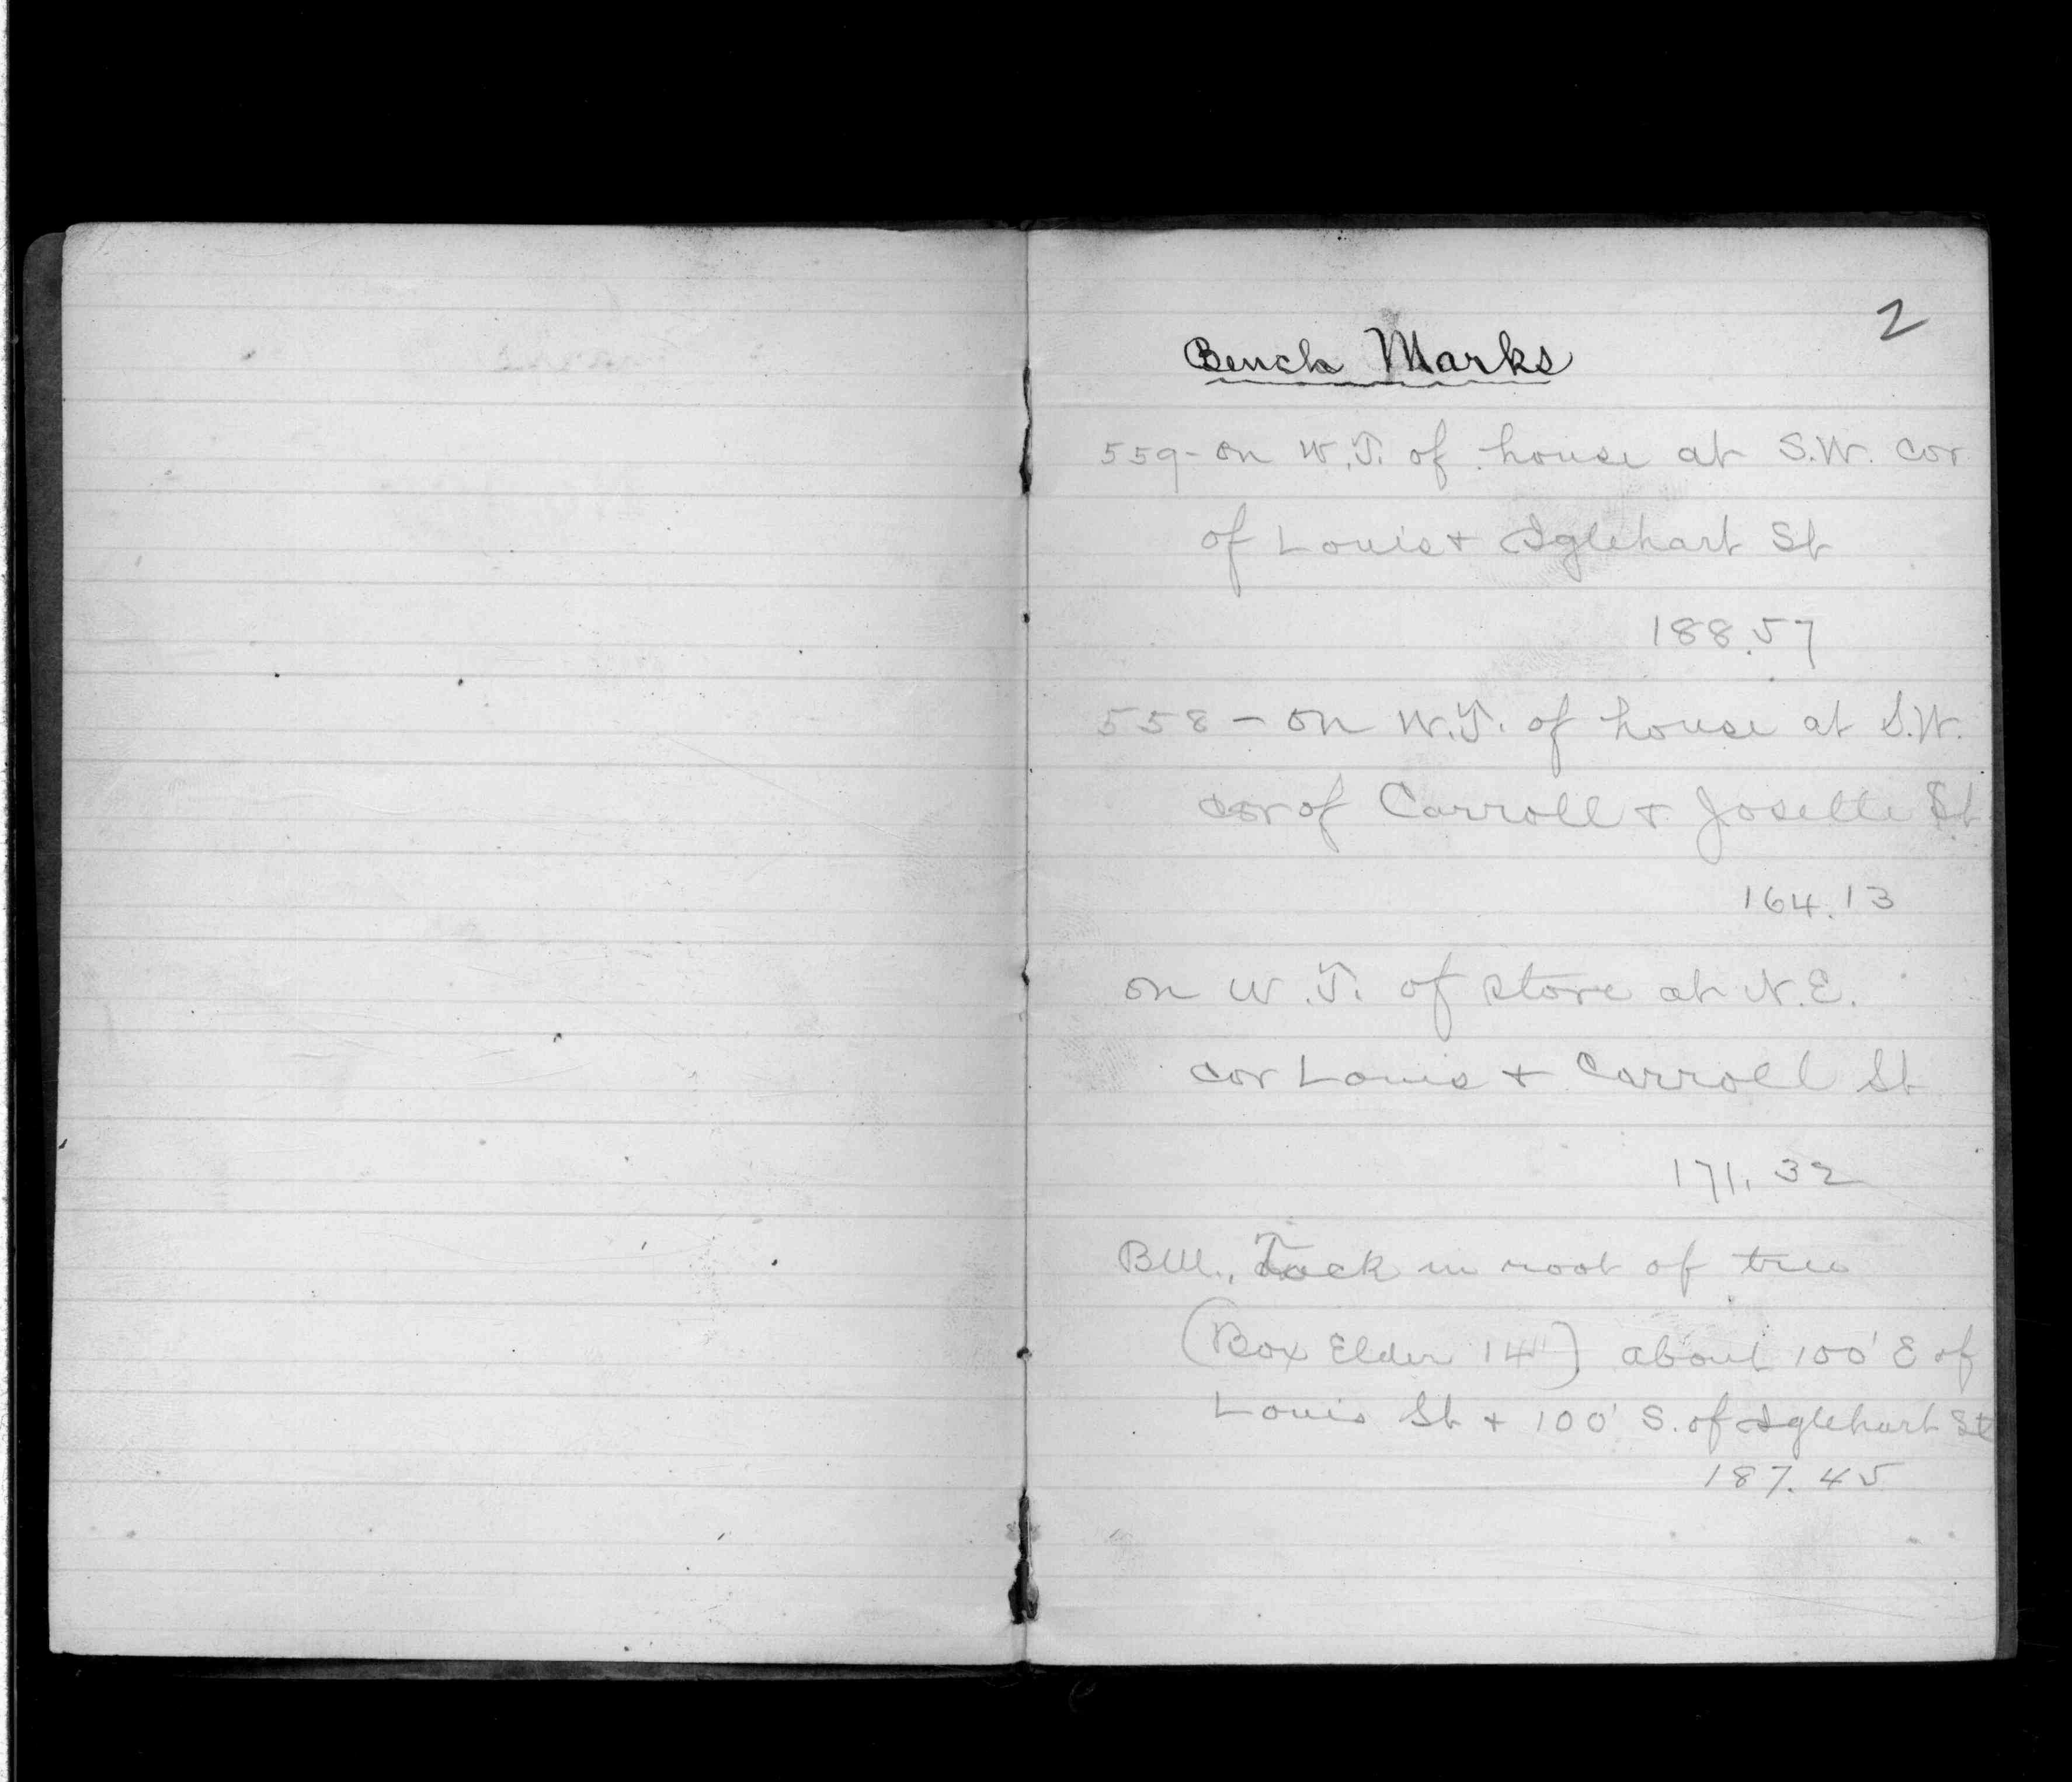 2
Bench Marks
559- on W.T. of house at S.W. cor
of Louis + Iglehart St
188.57
558 - on W.T. of house at S.W.
cor of Carroll + Josette St
164.13
on W.T. of store at N.E.
cor Louis + Carroll St
171.32
BM., Tack in root of tree
(Box Elder 14") about 100' E of
Louis St + 100' S. of Iglehart St
187.45